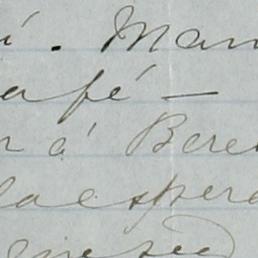 í. Man
afé —
r á Bere
la espera